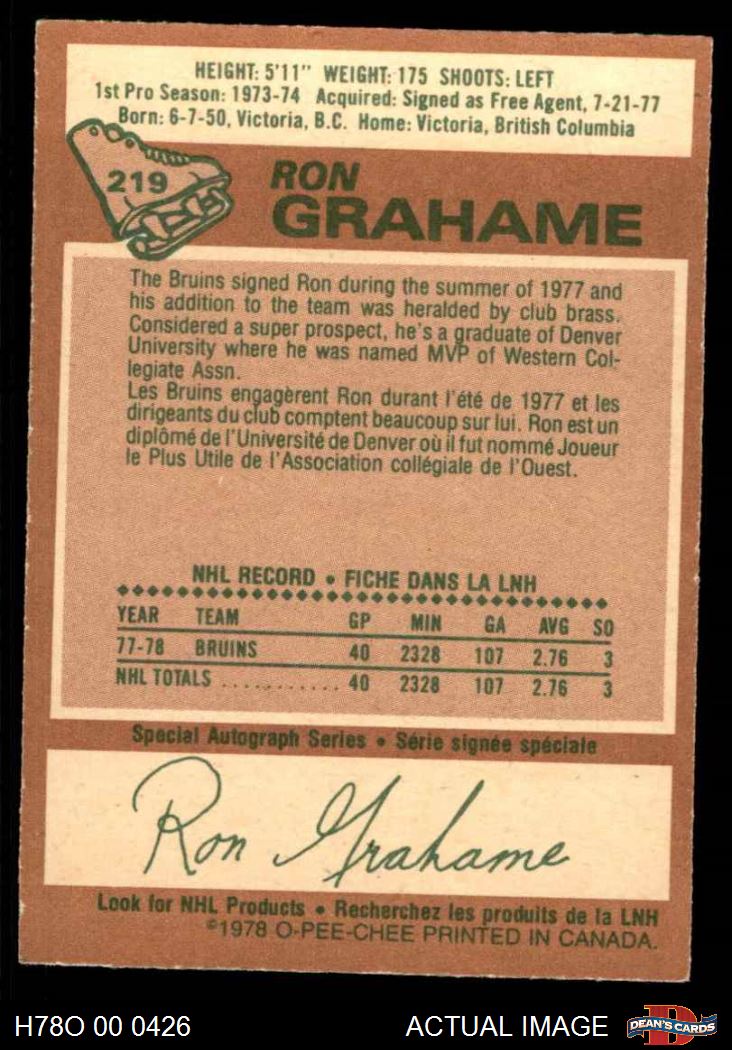 HEIGHT: 5'11" WEIGHT: 175 SHOOTS: LEFT
1st Pro Season: 1973-74 Acquired: Signed as Free Agent, 7-21-77
Born: 6-7-50, Victoria, B.C. Home: Victoria, British Columbia
219
RON
GRAHAME
The Bruins signed Ron during the summer of 1977 and
his addition to the team was heralded by club brass.
Considered a super prospect, he's a graduate of Denver
University where he was named MVP of Western Col-
legiate Assn.
Les Bruins engagèrent Ron durant l'été de 1977 et les
dirigeants du club comptent beaucoup sur lui. Ron est un
diplômé de l'Université de Denver où il fut nommé Joueur
le Plus Utile de l'Association collégiale de l'Ouest.
NHL RECORD • FICHE DANS LA LNH
YEAR TEAM GP MIN GA AVG SO
77-78 BRUINS 40 2328 107 2.76 3
NHL TOTALS ............ 40 2328 107 2.76 3
Special Autograph Series • Série signée spéciale
Ron Grahame
Look for NHL Products • Recherchez les produits de la LNH
©1978 O-PEE-CHEE PRINTED IN CANADA.
H78O 00 0426 ACTUAL IMAGE D DEAN'S CARDS